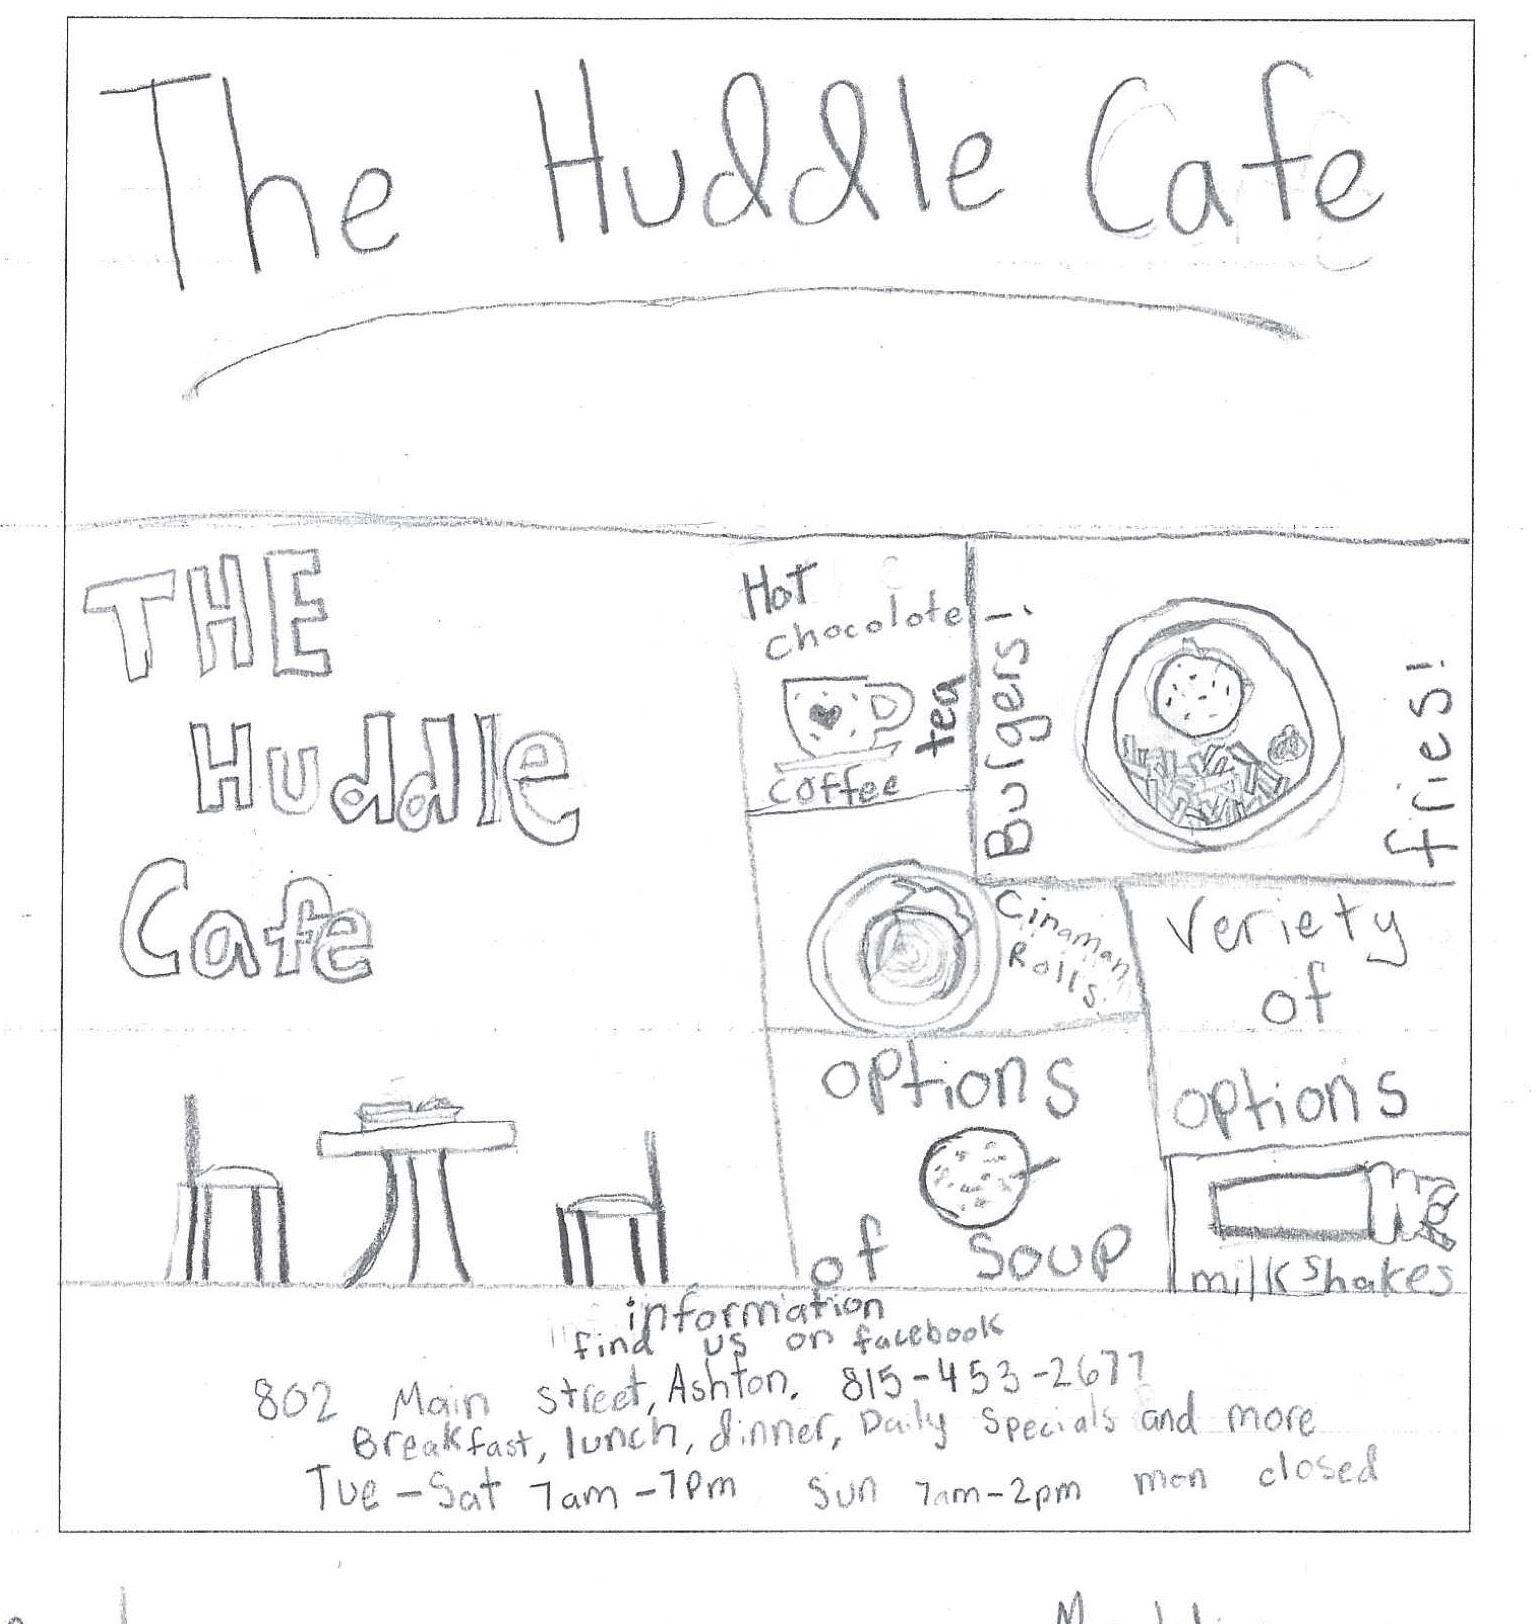 The Huddle Cafe
THE
Huddle
Cafe
Hot
chocolate
tea
coffee
Burgers!
fries!
Cinaman
Rolls!
Veriety
of
options
options
of Soup
milkshakes
information
find us on facebook
802 Main street, Ashton, 815-453-2677
Breakfast, lunch, dinner, Daily Specials and more
Tue-Sat 7am-7pm Sun 7am-2pm mon closed